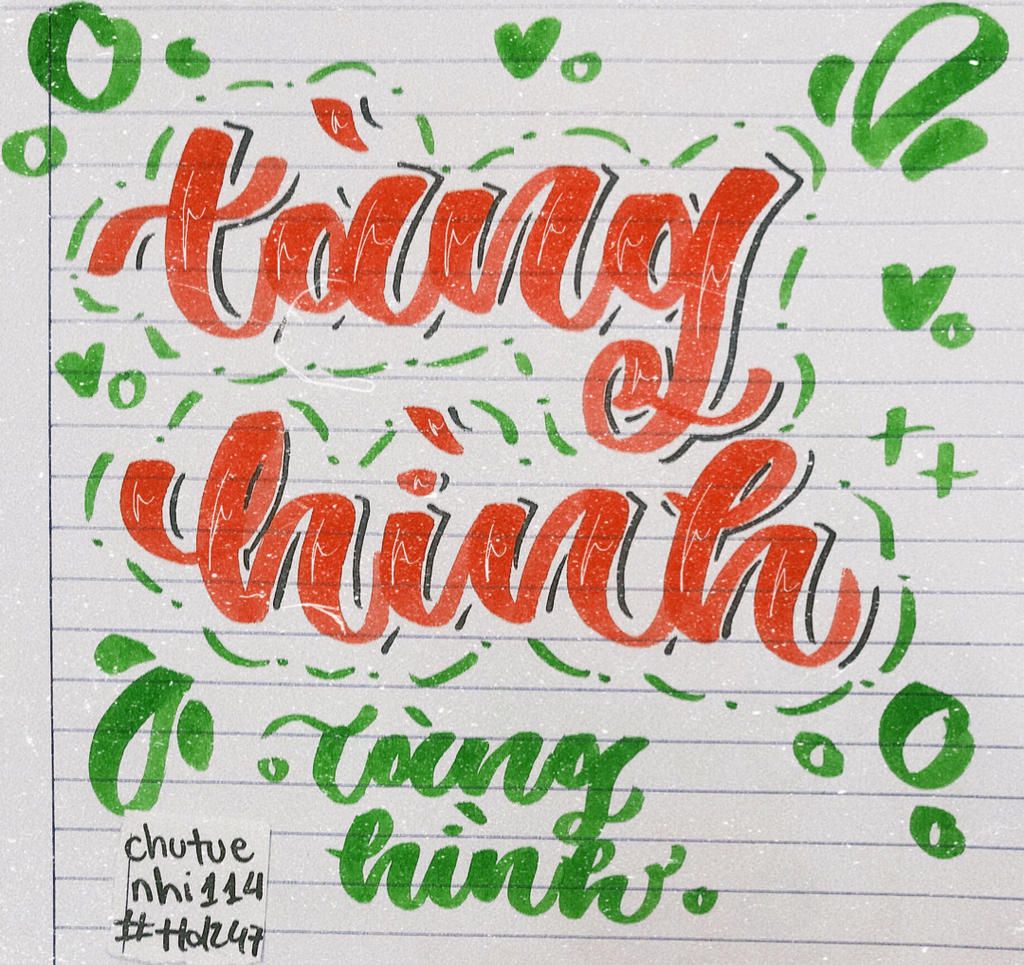 tàng
hình
tàng
hình
chutue
nhi114
#Hd247